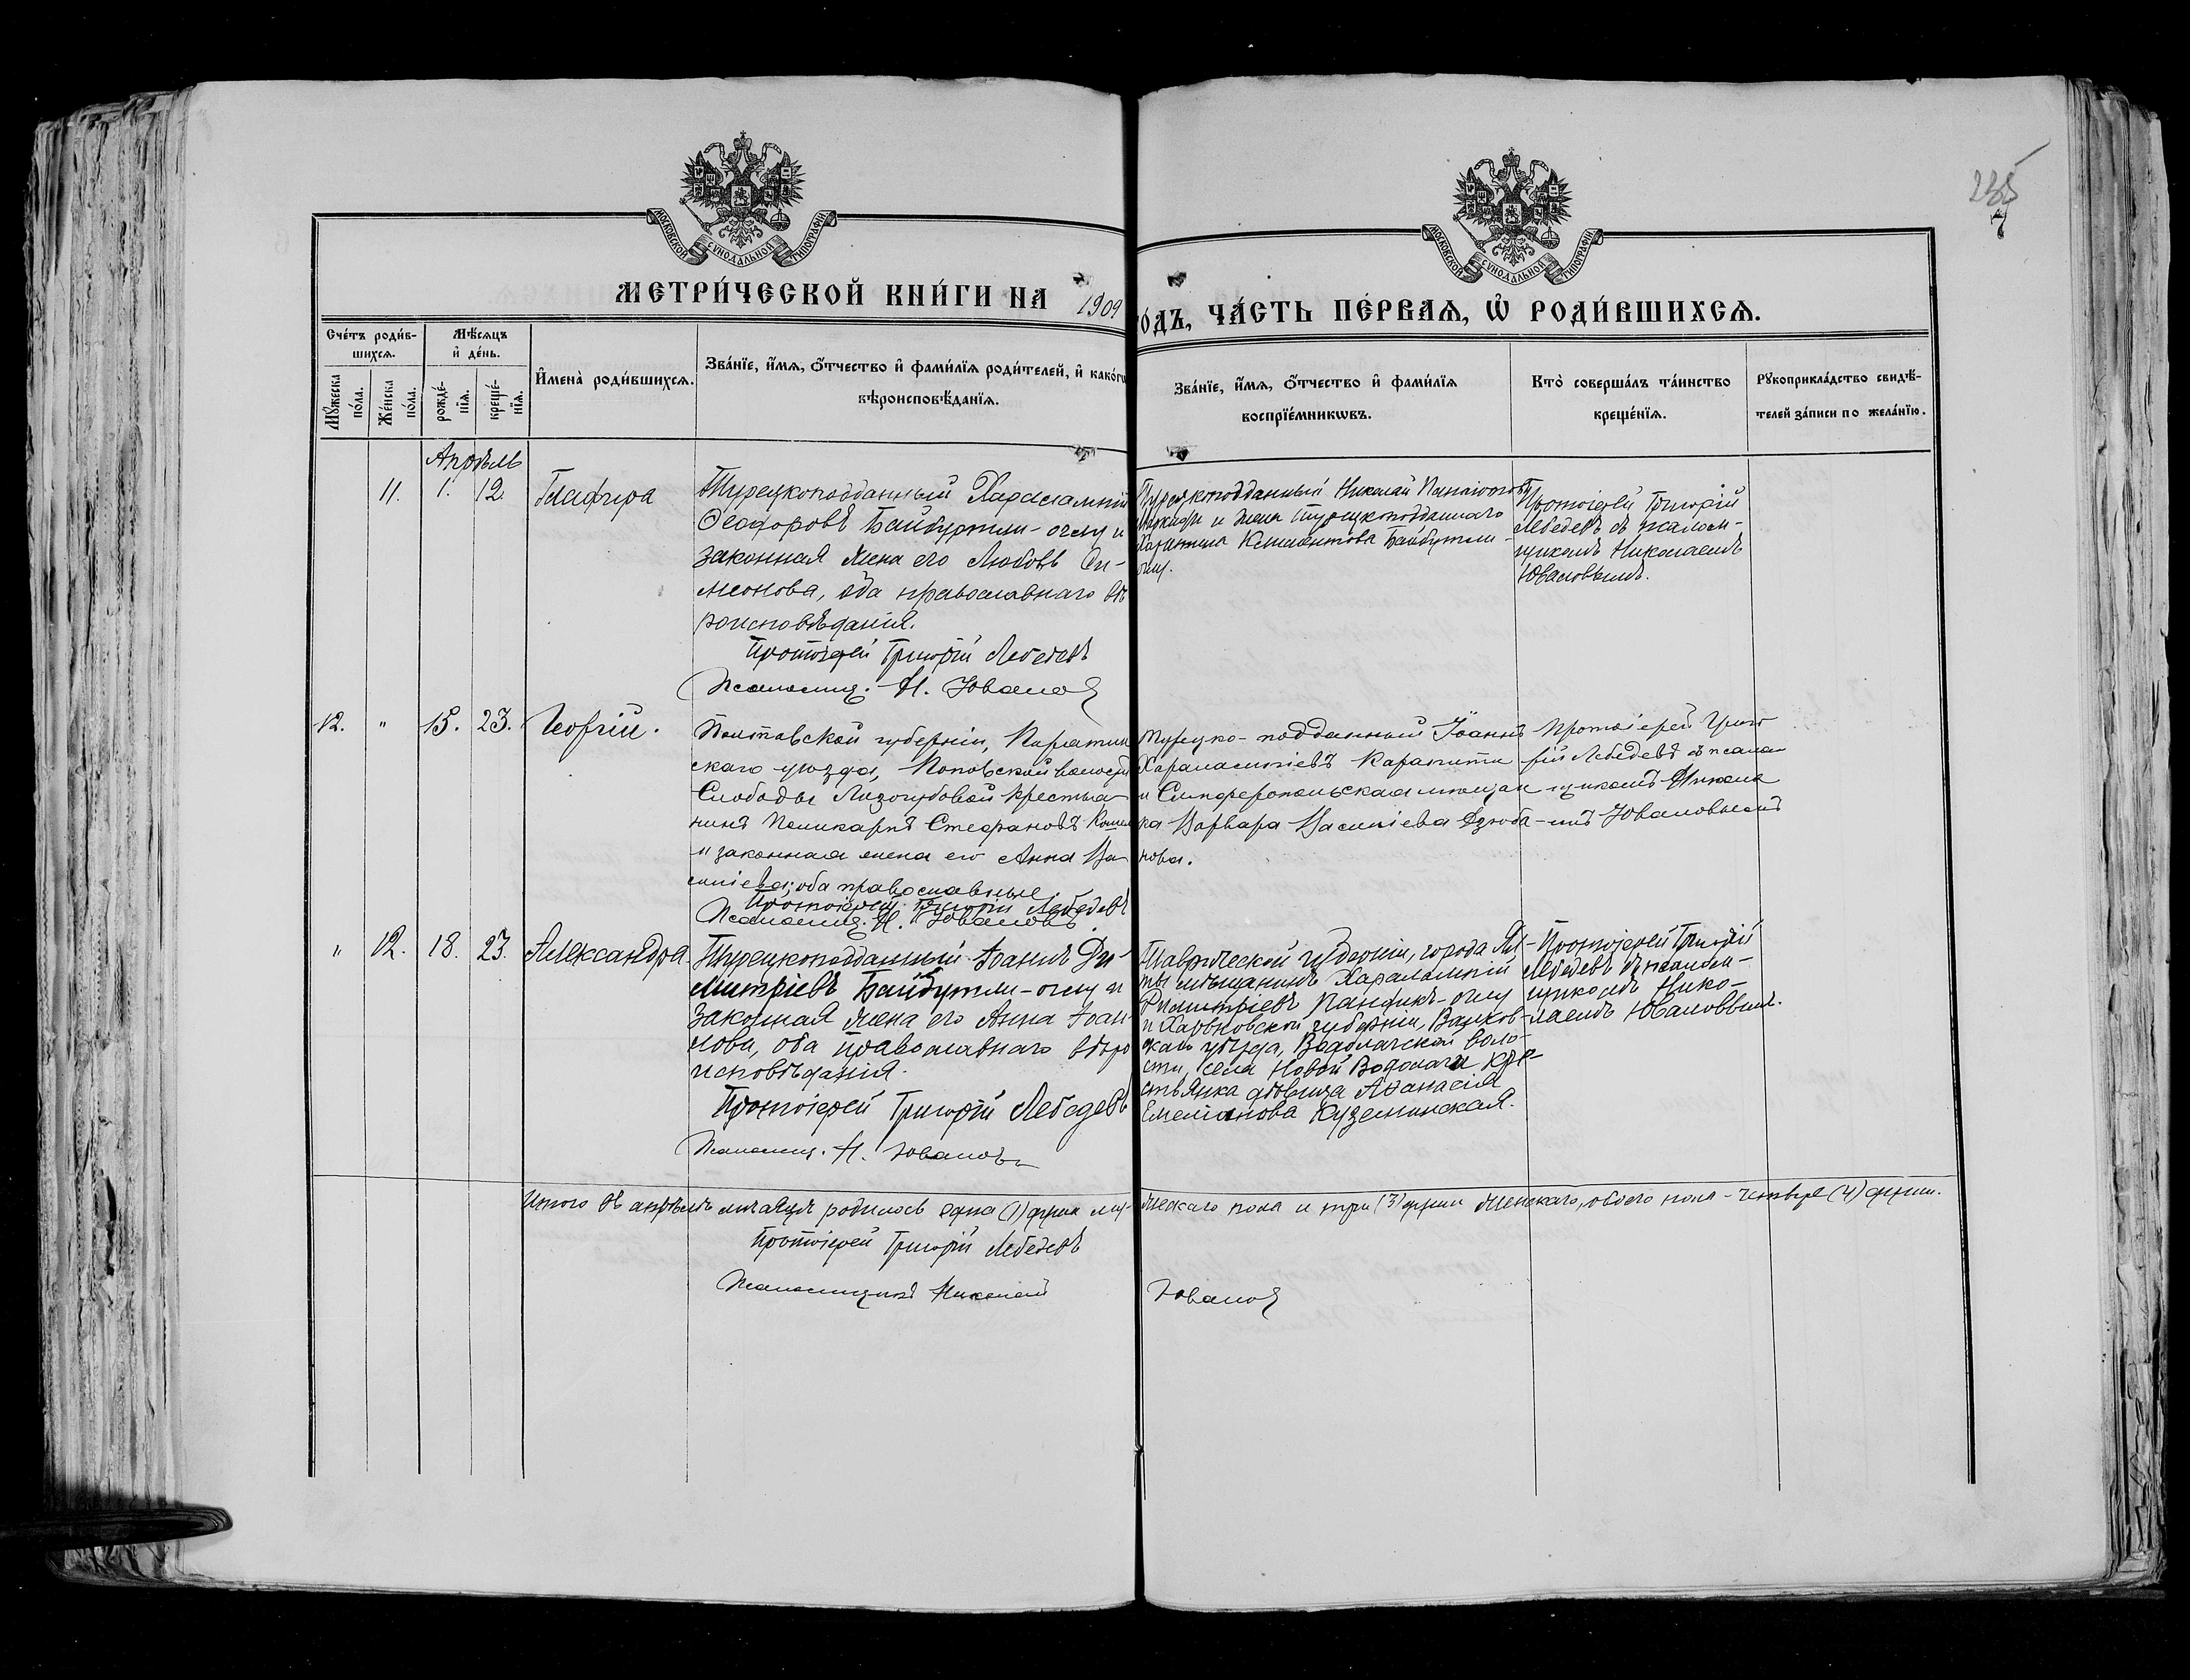 235
7
МОСКОВСКОЙ СѴНОДАЛЬНОЙ ТИПОГРАФІИ
МОСКОВСКОЙ СѴНОДАЛЬНОЙ ТИПОГРАФІИ
МЕТРИ́ЧЕСКОЙ КНИ́ГИ НА 1909
О́ДЪ, ЧА́СТЬ ПЕ́РВАЯ, Ѡ РОДИ́ВШИХСЯ.
Сче́тъ роди́в-
шихся.
Мѣ́сяцъ
и҆ де́нь.
Мꙋ́жеска
по́ла.
Же́нска
по́ла.
рожде́-
нїя.
креще́-
нїя.
И҆мена̀ роди́вшихся.
Зва́нїе, и҆́мя, ѻ҆́тчество и҆ фами́лїя роди́телей, и҆ како́гѡ
вѣроисповѣ́данїя.
Зва́нїе, и҆́мя, ѻ҆́тчество и҆ фами́лїя
воспрїе́мникѡвъ.
Кто̀ соверша́лъ та́инство
креще́нїя.
Рꙋкоприкла́дство свидѣ́-
телей за́писи по жела́нїю.
Апрѣль
11. 1. 12. Глафира
Турецкоподданный Харалампій
Ѳеодоровъ Байбуртли-оглу и
законная жена его Любовь Си-
меонова, оба православнаго вѣ
роисповѣданія.
Протоіерей Григорій Лебедевъ
Псаломщ. Н. Юваловъ
Турецкоподданный Николай Панаіотовъ
и жена Турецкоподданнаго
Харитина Климентова Байбуртли-
оглу.
Протоіерей Григорій
Лебедевъ съ псалом-
щикомъ Николаемъ
Юваловымъ.
12. " 15. 23. Георгій.
Полтавской губерніи, Пирятин
скаго уѣзда, Поповской волости
Слободы Лизогубовой крестья-
нинъ Поликарпъ Стефановъ
и законная жена его Анна Ва-
силіева; оба православные
Протоіерей Григорій Лебедевъ
Псаломщ. Н. Юваловъ.
Турецко-подданный Іоаннъ
Харалампіевъ
и Симферопольская мѣщан
ка Варвара Василіева Дзюба-
нова.
Протоіерей Григо
рій Лебедевъ съ псалом
щикомъ Никола
емъ Юваловымъ
" 12. 18. 23. Александра.
Турецкоподданный Іоаннъ Ди-
митріевъ Байбуртли-оглу и
законная жена его Анна Іоан-
нова, оба православнаго вѣро
исповѣданія.
Протоіерей Григорій Лебедевъ
Псаломщ. Н. Юваловъ
Таврической губерніи, города Ял-
ты мѣщанинъ Харалампій
Димитріевъ Панфикъ-оглу
и Харьковской губерніи, Валков-
скаго уѣзда, Водолагской воло-
сти, села Новой Водолаги кре
стьянка дѣвица Аѳанасія
Емеліанова Куземинская.
Протоіерей Григорій
Лебедевъ съ псалом-
щикомъ Нико-
лаемъ Юваловымъ.
Итого въ апрѣлѣ мѣсяцѣ родилось одна (1) душа му-
жескаго пола и три (3) души женскаго, обоего пола - четыре (4) души.
Протоіерей Григорій Лебедевъ
Псаломщикъ Николай Юваловъ